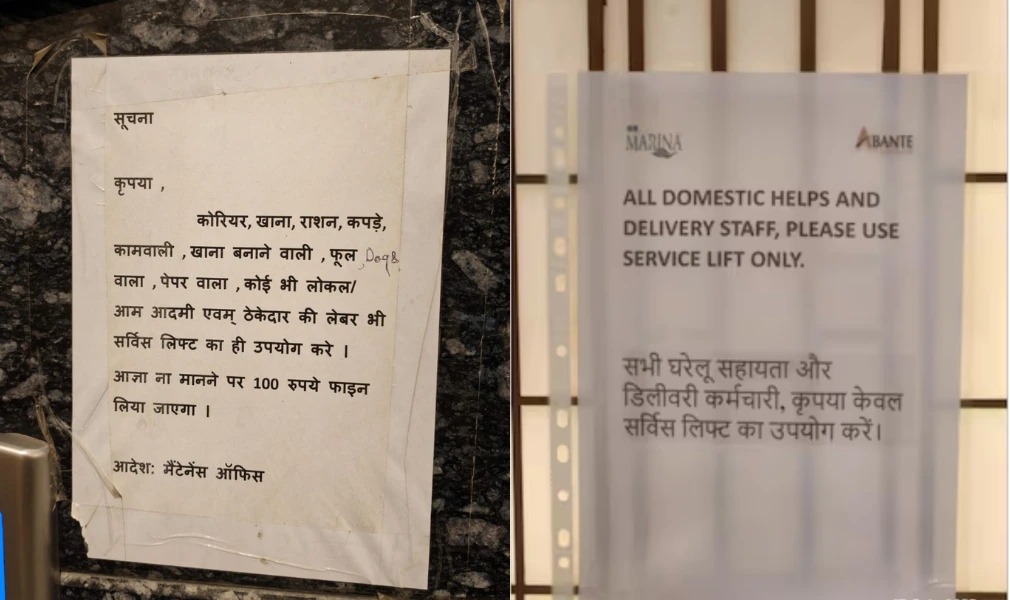 सूचना
कृपया ,
कोरियर, खाना, राशन, कपड़े,
कामवाली ,खाना बनाने वाली ,फूल ,Dogs
वाला ,पेपर वाला ,कोई भी लोकल/
आम आदमी एवम् ठेकेदार की लेबर भी
सर्विस लिफ्ट का ही उपयोग करे ।
आज्ञा ना मानने पर 100 रुपये फाइन
लिया जाएगा ।
आदेश: मैंटेनेंस ऑफिस
MARINA
ABANTE
ALL DOMESTIC HELPS AND
DELIVERY STAFF, PLEASE USE
SERVICE LIFT ONLY.
सभी घरेलू सहायता और
डिलीवरी कर्मचारी, कृपया केवल
सर्विस लिफ्ट का उपयोग करें।